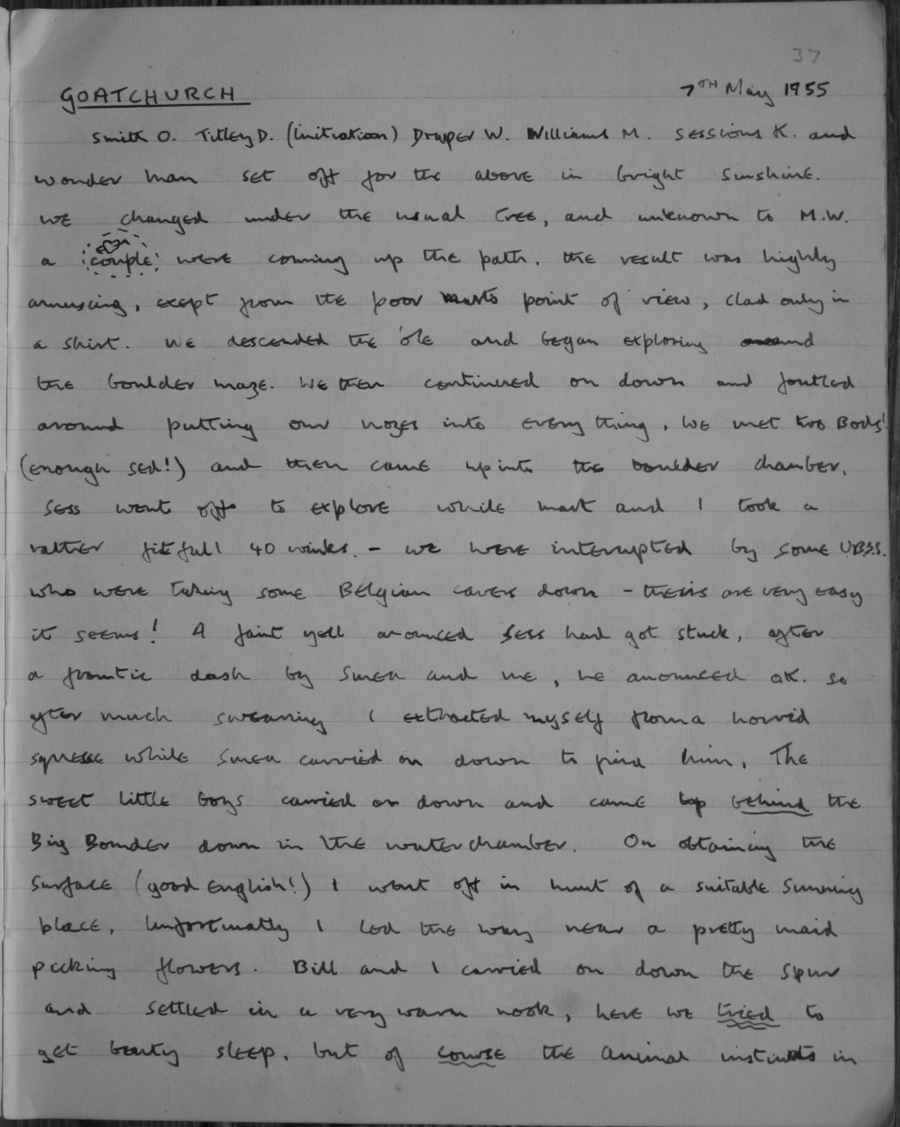 37
GOATCHURCH 7TH May 1955
Smith O. Titley D. (initiation) Draper W. Williams M. Sessions K. and
wonder man set off for the above in bright sunshine.
we changed under the usual tree, and unknown to M.W.
a couple were coming up the path. the result was highly
amuscing, exept from the poor point of view, clad only in
a shirt. We descended the 'ole and began exploring
the boulder maze. We then continued on down and footled
around putting our nozes into everything. We met two Bods!
(enough sed!) and then came up into the boulder chamber.
Sess went off to explore while mart and I took a
rather fitfull 40 winks. - we were interrupted by some UBSS.
who were taking some Belgian cavers down - theirs are very easy
it seems! A faint yell anounced Sess had got stuck, after
a frantic dash by Smea and me, he anounced OK. so
after much swearing I extracted myself from a horrid
squeese while Smea carried on down to find him. The
sweet little boys carried on down and came up behind the
Big Bounder down in the waterchamber. On obtaining the
surface (good english!) I went off in hunt of a suitable sunning
place. Unfortunatly I led the way near a pretty maid
pcking flowers. Bill and I carried on down the spur
and settled in a very warm nook, here we tried to
get beauty sleep. but of course the animal instincts in